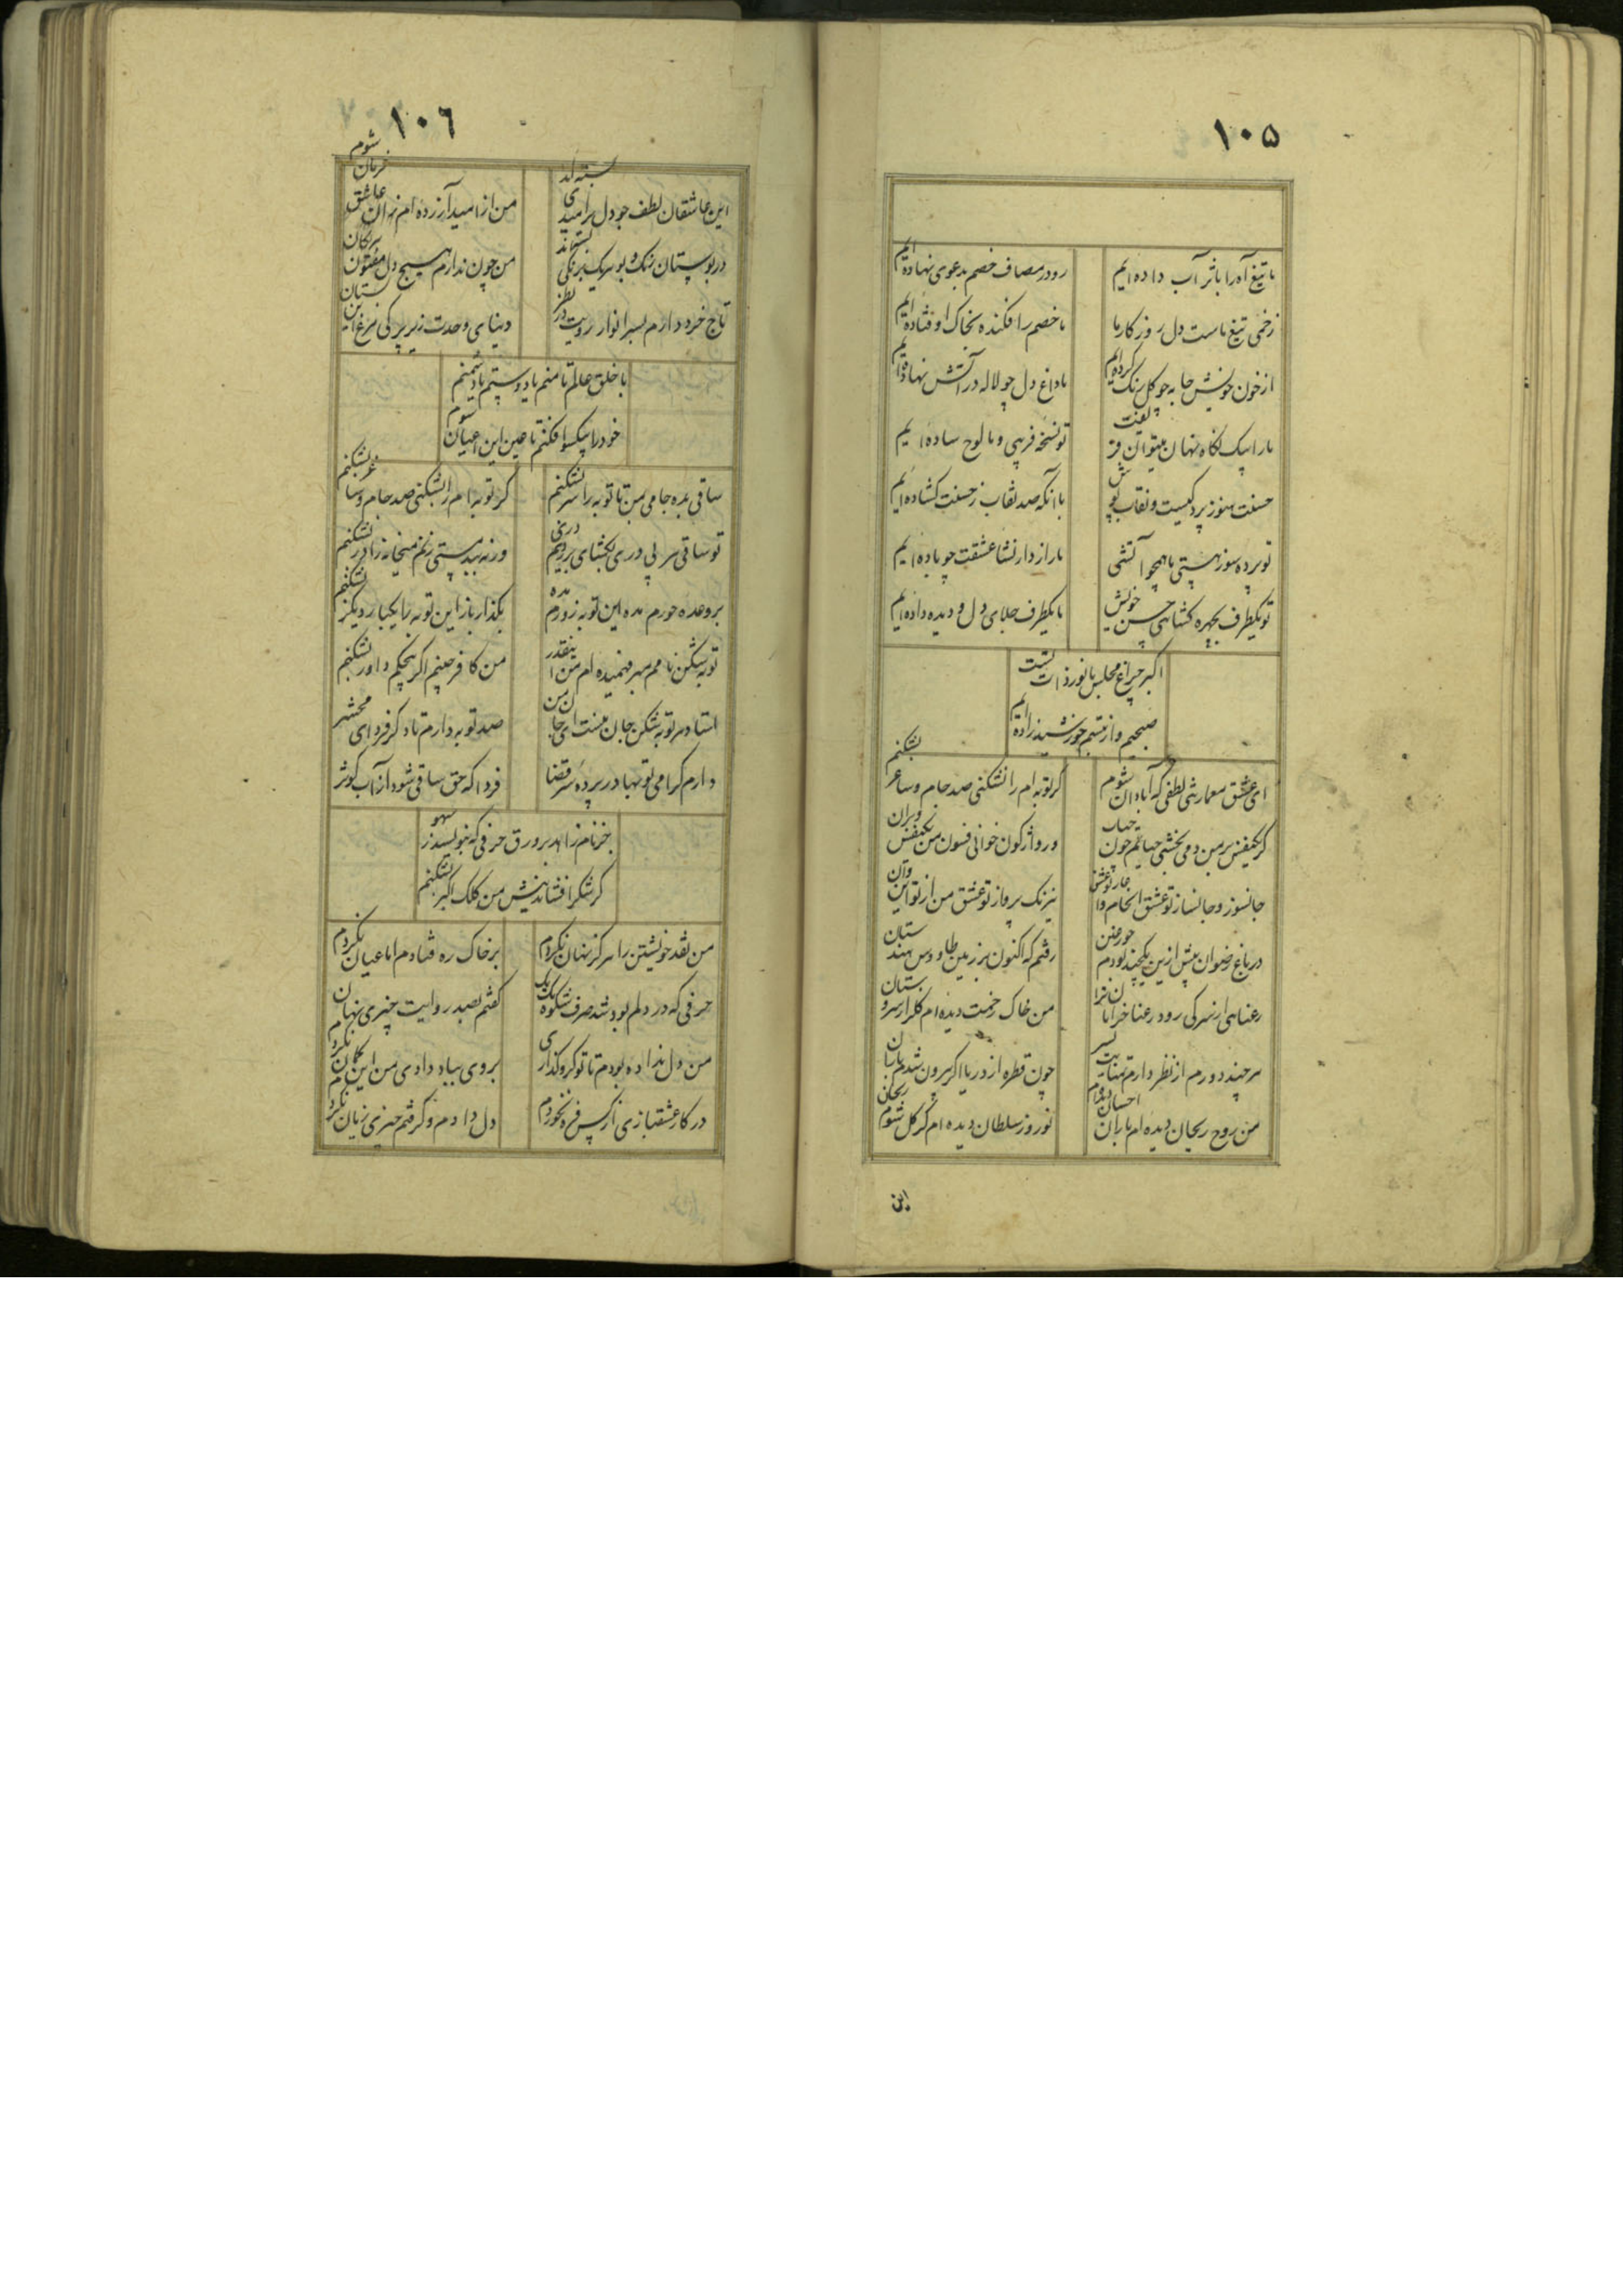 ۱۰۵
ما تیغ آه را باثر آب داده ایم
رو در مصاف خصم بدعوی نهاده ایم
زخمی تیغ ماست دل روزکار ما
ما خصم را فکنده بخاک اوفتاده ایم
از خون خویش جا به چو کل رنک کرده ایم
ما داغ دل چو لاله در آتش نهاده ایم
ما را بیک نکاه نهان میتوان فریفت
تو نسخه فریبی و ما لوح ساده ایم
حسنت هنوز پرد کیست و نقاب پوش
با آنکه صد نقاب ز حسنت کشاده ایم
تو پرده سوز هستی ما همچو آتشی
ما رازدار نشاء عشقت چو باده ایم
تو یکطرف بچهره کشائی حسن خویش
ما یکطرف جلای دل و دیده داده ایم
اکبر چراغ مجلس ما نور ذات تست
صبحیم و از تبسم خورشید زاده ایم
ای عشق معمارش لطفی که آبادان شوم
کر توبه ام را نشکنی صد جام و ساغر بشکنم
کر یکنفس بر من دمی بخشی حیاتم چون حباب
ور واژکون خوانی فسون من یکنفس ویران
جانسوز و جانساز تو عشق انجام و آغاز تو عشق
نیرنک پرواز تو عشق من از تو این و آن
در باغ رضوان پیش ازین یکچند بودم حور عین
رفتم که اکنون بر زمین طاووس هندستان
رعنائی از سر کی رود رعنا خرامان ترا
من خاک رخمت دیده ام کلزار سروستان
هر چند دورم از نظر دارم تمنایت بسر
چون قطره از دریا اکر بیرون شدم باران
من روح ریحان دیده ام باران احسان دیده ام
نوروز سلطان دیده ام کر کل شوم ریحان
این
۱۰٦
این عاشقان لطف جو دل بر امیدی بسته اند
من از امید آزرده ام زان عاشق حرمان شوم
در بوستان رنک و بو هر یک برنکی بسته اند
من چون ندارم هیچ دل مفتون
تاج خرد دارم بسر انوار رویت در نظر
دنیای وحدت زیر پر کی مرغ این بستان
با خلق عالم تا منم یا دوستم یا دشمنم
خود را بیکسو افکنم تا عین این اعیان شوم
ساقی بده جامی بمن تا توبه را سر بشکنم
کر توبه ام را بشکنی صد جام و ساغر بشکنم
تو ساقی هر بی دری بکشای بر رویم دری
ورنه بدستی زنم میخانه را در بشکنم
بر وعده حورم مده این توبه زورم مده
بکذار باز این توبه را یکبار دیکر بشکنم
توبه شکن نامم مبر فهمیده ام من اینقدر
من کافر عینم اکر حکم داور بشکنم
استاده بر توبه شکن جان منست ای جان من
صد توبه دارم تا دکر فردای محشر
دارم کرامی توبها در پرده سر قضا
فردا که حق ساقی شود از آب کوثر
جز نام زاهد بر ورق حرفی که بنویسد ز سهو
کر شکر افشاند نیش من کلک اکبر بشکنم
من نقد خویشتن را هرکز نهان نکردم
بر خاک ره فتادم اما عیان نکردم
حرفی که در دلم بود شد صرف شکوه یک یک
کفتم بصد روایت چیزی نهان نکردم
من دل نداده بودم تا تو کرو کذاری
بروی بباد دادی من این کمان نکردم
در کار عشقبازی از کس فره نخوردم
دل دادم و کرفتم چیزی زیان نکردم